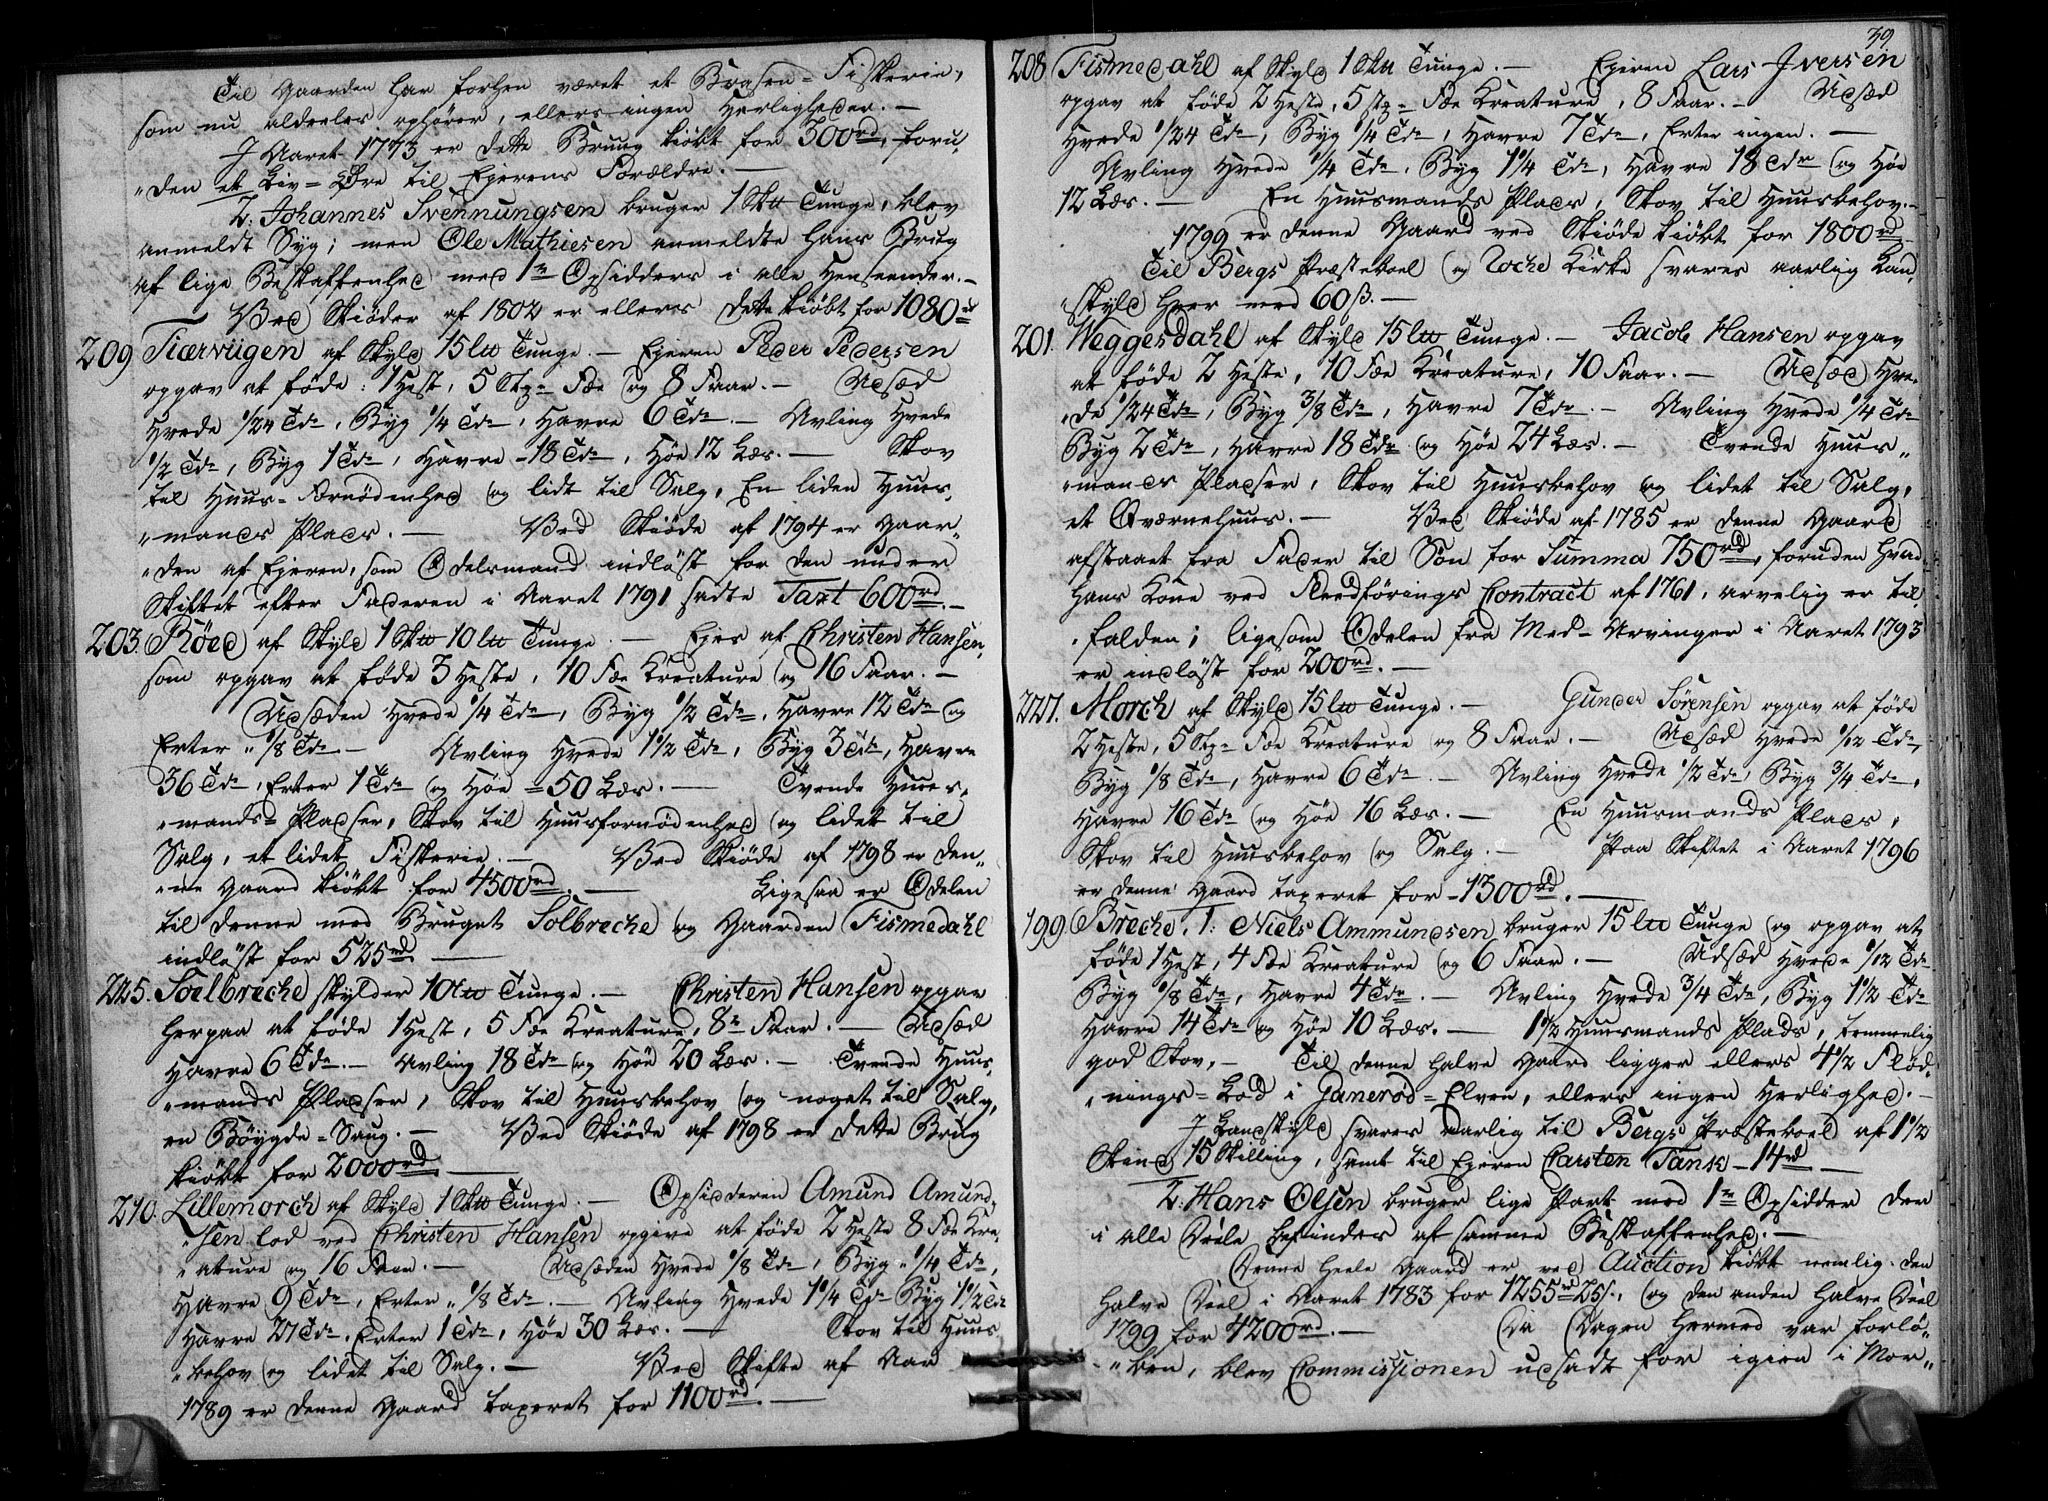 Til Gaarden har forhen været et Brasen-Fiskerie,
som nu aldeeles ophører, ellers ingen Herligheder. —
I Aaret 1773 er dette Bruug kiøbt for 300 rd, foru-
„den et Liv-Øre til Ejerens Forældre. —
2. Johannes Svennungsen bruger 1 Sk℔ Tunge, blev
anmeldt Syg; men Ole Mathiesen anmeldte hans Brug
af lige Beskaffenhed med 1ne Opsidders i alle Henseender. —
Ved Skiøder af 1802 er ellers dette kiøbt for 1080 rd
209 Tiærviigen af Skyld 15 l℔ Tunge. — Ejeren Peder Pedersen
opgav at føde: 1 Hest, 5 Stz- Fæe og 8 Faar. — Udsæd
Hvede 1/24 Tde, Byg 1/4 Tde, Havre 6 Tdr. — Avling Hvede
1/2 Tde, Byg 1 Tde, Havre - 18 Tdr, Høe 12 Læs. — Skov
til Huus-Fornødenhed og lidt til Salg, En liden Huus-
„mands Plads. — Ved Skiøde af 1794 er Gaar-
„den af Ejeren, som Odelsmand indløst for den under
Skiftet efter Faderen i Aaret 1791 sadte Taxt 600 rd. —
203. Röed af Skyld 1 Sk℔ 10 l℔ Tunge. — Ejes af Christen Hansen,
som opgav at føde 3 Heste, 10 Fæe Kreature og 16 Faar. —
Udsæden Hvede 1/4 Tde, Byg 1/2 Tde, Havre 12 Tdr og
Erter „ 1/8 Tde — Avling Hvede 1 1/2 Tde, Byg 3 Tdr, Havre
36 Tdr, Erter 1 Tde og Høe = 50 Læs. — Tvende Huus-
„mands-Pladser, Skov til Huusfornødenhed og lidet til
Salg, et lidet Fiskerie. — Ved Skiøde af 1798 er den-
„ne Gaard kiøbt for 4500 rd. — Ligesaa er Odelen
til denne med Bruget Solbreche og Gaarden Fismedahl
indløst for 525 rd. —
225. Soelbreche skylder 10 l℔ Tunge. — Christen Hansen opgav
herpaa at føde 1 Hest, 5 Fæe Kreature, 8 Faar. — Udsæd
Havre 6 Tdr. — Avling 18 Tdr og Høe 20 Læs. — Tvende Huus-
„mands Pladser, Skov til Huusbehov og noget til Salg,
en Böygde-Saug. — Ved Skiøde af 1798 er dette Brug
kiøbt for 2000 rd. —
210. Lillemorch af Skyld 1 Sk℔ Tunge. — Opsidderen Amund Amund-
„sen lod ved Christen Hansen opgive at føde 2 Heste 8 Fæe Kre-
„ature og 16 Faar. — Udsæden Hvede 1/8 Tde, Byg „ 1/4 Tde,
Havre 9 Tdr, Erter „ 1/8 Tde. — Avling Hvede 1 1/4 Tde Byg 1 1/2 Tde
Havre 27 Tdr, Erter 1 Tde, Høe 30 Læs. — Skov til Huus
„behov og lidet til Salg. — Ved Skifte af Aar
1789 er denne Gaard taxeret for 1100 rd. —
39.
208 Fismedahl af Skyld 1 Sk℔ Tunge. — Ejeren Lars Iversen
opgav at føde 2 Heste, 5 stz- Fæe Kreature, 8 Faar. — Udsæd
Hvede 1/24 Tde, Byg 1/4 Tde, Havre 7 Tdr, Erter ingen. —
Avling Hvede 1/4 Tde, Byg 1 1/4 Tde, Havre 18 Tdr og Høe
12 Læs. — En Huusmands Plads, Skov til Huusbehov. —
1799 er denne Gaard ved Skiøde kiøbt for 1800 rd —
Til Bergs Præsteboel og Roche Kirke svares aarlig Land-
„skyld hver med 60 ß. —
201. Weggesdahl af Skyld 15 l℔ Tunge. — Jacob Hansen opgav
at føde 2 Heste, 10 Fæe Kreature, 10 Faar. — Udsæd Hve-
„de 1/24 Tde, Byg 3/8 Tde, Havre 7 Tdr. — Avling Hvede 1/4 Tde
Byg 2 Tdr, Havre 18 Tdr og Høe 24 Læs. — Tvende Huus-
„mands Pladser, Skov til Huusbehov og lidet til Salg,
et Qværnehuus. — Ved Skiøde af 1785 er denne Gaard
afstaaet fra Fader til Søn for Summa 750 rd, foruden hvad
hans Kone ved Fledførings Contract af 1761, arvelig er til-
„falden; ligesom Odelen fra Med-Arvinger i Aaret 1793
er indløst for 200 rd. —
227. Morch af Skyld 15 l℔ Tunge. — Gunder Sørensen opgav at føde
2 Heste, 5 Stz- Fæe Kreature og 8 Faar. — Udsæd Hvede 1/12 Tde,
Byg 1/8 Tde, Havre 6 Tdr. — Avling Hvede 1/2 Tde, Byg 3/4 Tde,
Havre 16 Tdr og Høe 16 Læs. — En Huusmands Plads,
Skov til Huusbehov og Salg. — Paa Skiftet i Aaret 1796
er denne Gaard taxeret for - 1300 rd. —
199. Breche. 1: Niels Ammundsen bruger 15 l℔ Tunge og opgav at
føde 1 Hest, 4 Fæe Kreature og 6 Faar. — Udsæd Hvede 1/12 Tde
Byg 1/8 Tde, Havre 4 Tdr. — Avling Hvede 3/4 Tde, Byg 1 1/2 Tde
Havre 14 Tdr og Høe 10 Læs. — 1 1/2 Huusmands Plads, temmelig
god Skov, — Til denne halve Gaard ligger ellers 4 1/2 Flød-
„nings-Lod i Ganerød-Elven, ellers ingen Herlighed. —
I Landskyld svares aarlig til Bergs Præsteboel af 1 1/2
Skind 15 Skilling, samt til Ejeren Carsten Tank - 14 rd —
2. Hans Olsen bruger lige Part med 1ne Opsidder der
i alle Deele befindes af samme Beskaffenhed. —
Denne heele Gaard er ved Auction kiøbt nemlig den
halve Deel i Aaret 1783 for 1255 rd 25 ß, og den anden halve Deel
1799 for 4200 rd. — Da Dagen hermed var forlø-
„ben, blev Commissionen udsadt for igien i Mor-